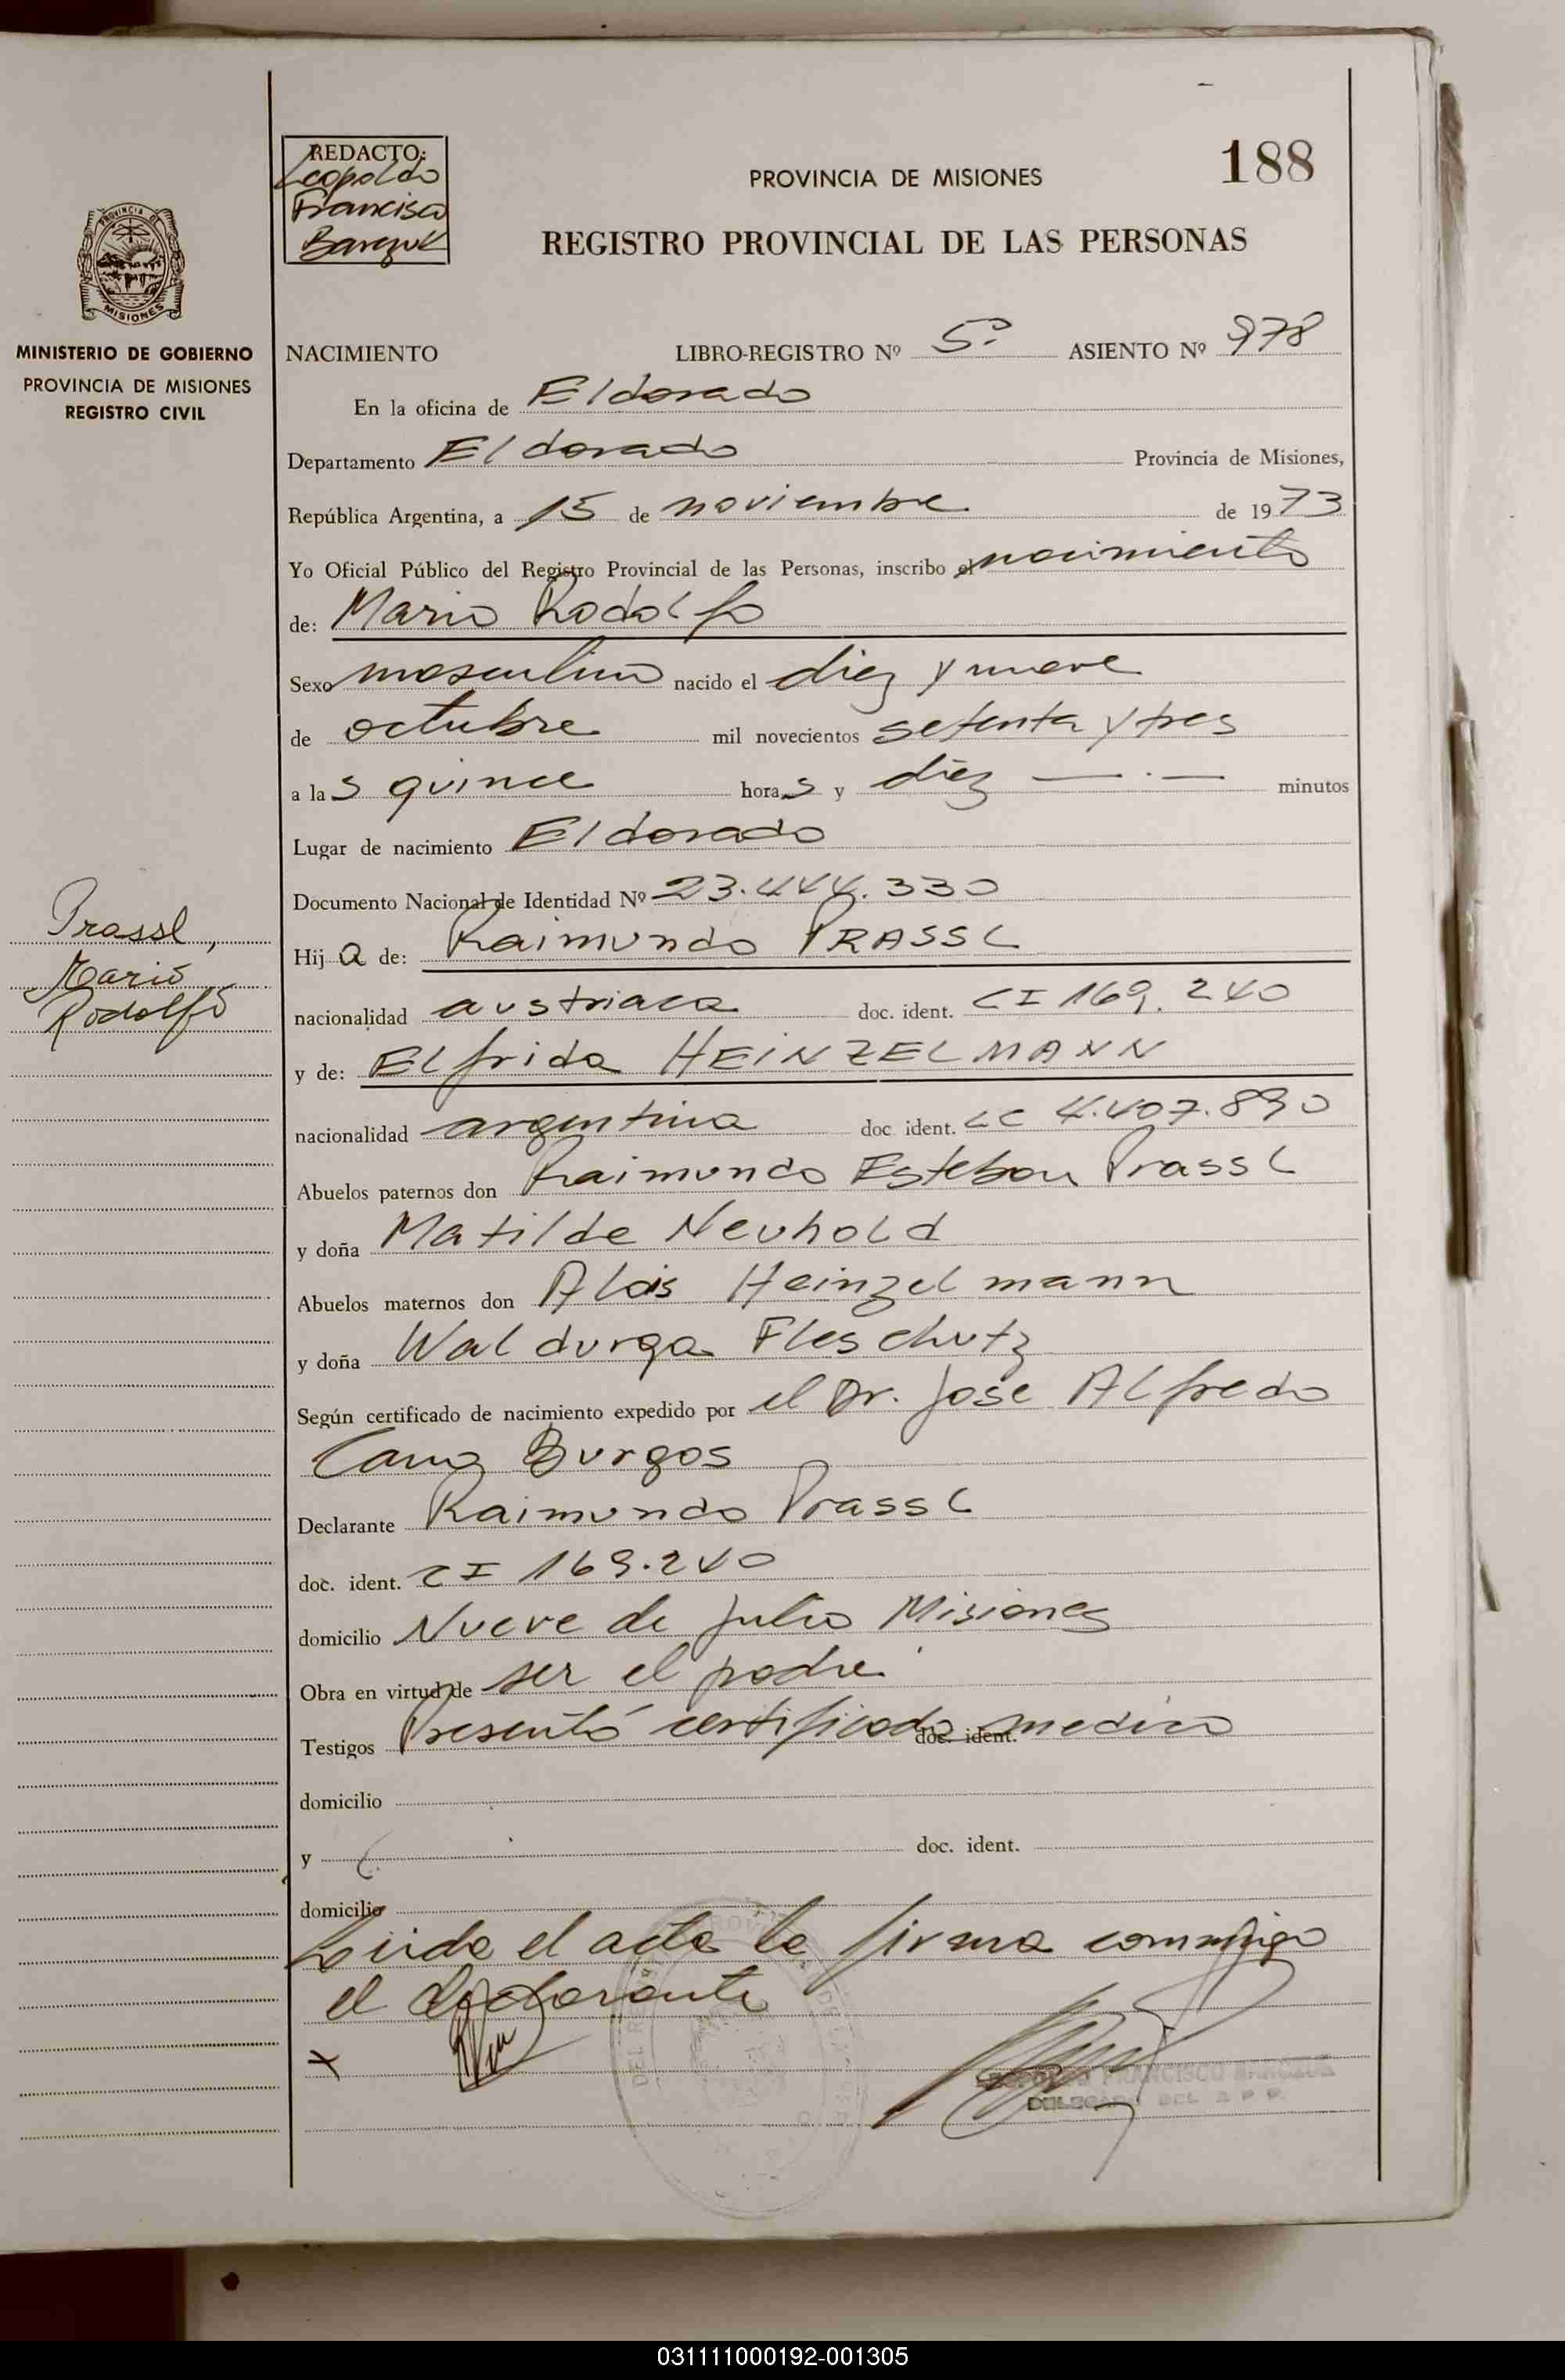 188
REDACTO:
Leopoldo
Francisco
PROVINCIA DE MISIONES
REGISTRO PROVINCIAL DE LAS PERSONAS
PROVINCIA DE
MISIONES
MINISTERIO DE GOBIERNO
PROVINCIA DE MISIONES
REGISTRO CIVIL
NACIMIENTO LIBRO-REGISTRO Nº 5º ASIENTO Nº 978
En la oficina de Eldorado
Departamento Eldorado Provincia de Misiones,
República Argentina, a 15 de noviembre de 1973
Yo Oficial Público del Registro Provincial de las Personas, inscribo el nacimiento
de: Mario Rodolfo
Sexo masculino nacido el diez y nueve
de octubre mil novecientos setenta y tres
a las quince horas y diez minutos
Lugar de nacimiento Eldorado
Documento Nacional de Identidad Nº 23.444.330
Prassl,
Mario
Rodolfo
Hijo de: Raimundo PRASSL
nacionalidad austriaca doc. ident. CI 169.240
y de: Elfrida HEINZELMANN
nacionalidad argentina doc. ident. LC 4.407.890
Abuelos paternos don Raimundo Esteban Prassl
y doña Matilde Neuhold
Abuelos maternos don Alois Heinzelmann
y doña Waldurga Fleschutz
Según certificado de nacimiento expedido por el Dr. Jose Alfredo
Burgos
Declarante Raimundo Prassl
doc. ident. CI 169.240
domicilio Nueve de Julio Misiones
Obra en virtud de ser el padre
Testigos Presentó certificado doc. ident. medico
domicilio
y doc. ident.
domicilio
Leida el acta la firma conmigo
el declarante
x
FRANCISCO
031111000192-001305